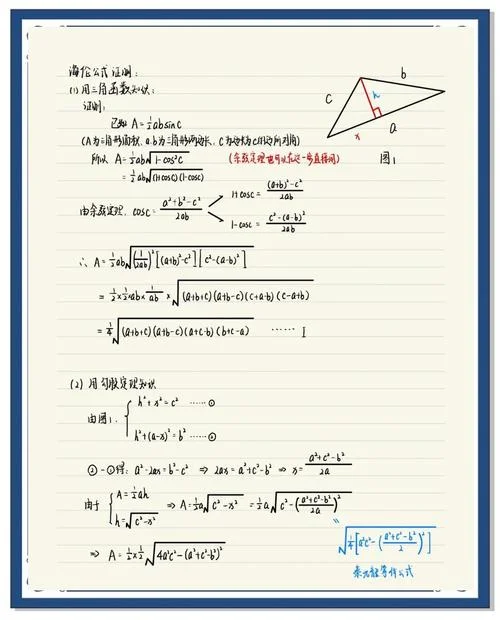 海伦公式证明：
(1) 用三角函数知识：
证明：
已知 A=½absinC
(A为三角形面积，a.b为三角形两边长，C为边长为c的边的对角)
所以 A=½ab√(1-cos²C) (余弦定理也可以在这一步直接用)
=½ab√((1+cosC)(1-cosC))
由余弦定理，cosC=(a²+b²-c²)/2ab
1+cosC=((a+b)²-c²)/2ab
1-cosC=(c²-(a-b)²)/2ab
∴ A=½ab√((1/2ab)²[(a+b)²-c²][c²-(a-b)²])
=½×½×ab×1/ab×√((a+b+c)(a+b-c)(c+a-b)(c-a+b))
=¼√((a+b+c)(a+b-c)(a+c-b)(b+c-a)) ······ I
c
b
h
x
a
图1
(2) 用勾股定理知识
由图1.
{ h²+x²=c² ······①
h²+(a-x)²=b² ······②
②-①得: a²-2ax=b²-c² ⇒ 2ax=a²+c²-b² ⇒ x=(a²+c²-b²)/2a
由于 { A=½ah
h=√(c²-x²)
⇒ A=½a√(c²-x²) =½a√(c²-((a²+c²-b²)/2a)²)
⇒ A=½×½√(4a²c²-(a²+c²-b²)²)
=
√(¼[a²c²-((a²+c²-b²)/2)²])
秦九韶等价公式